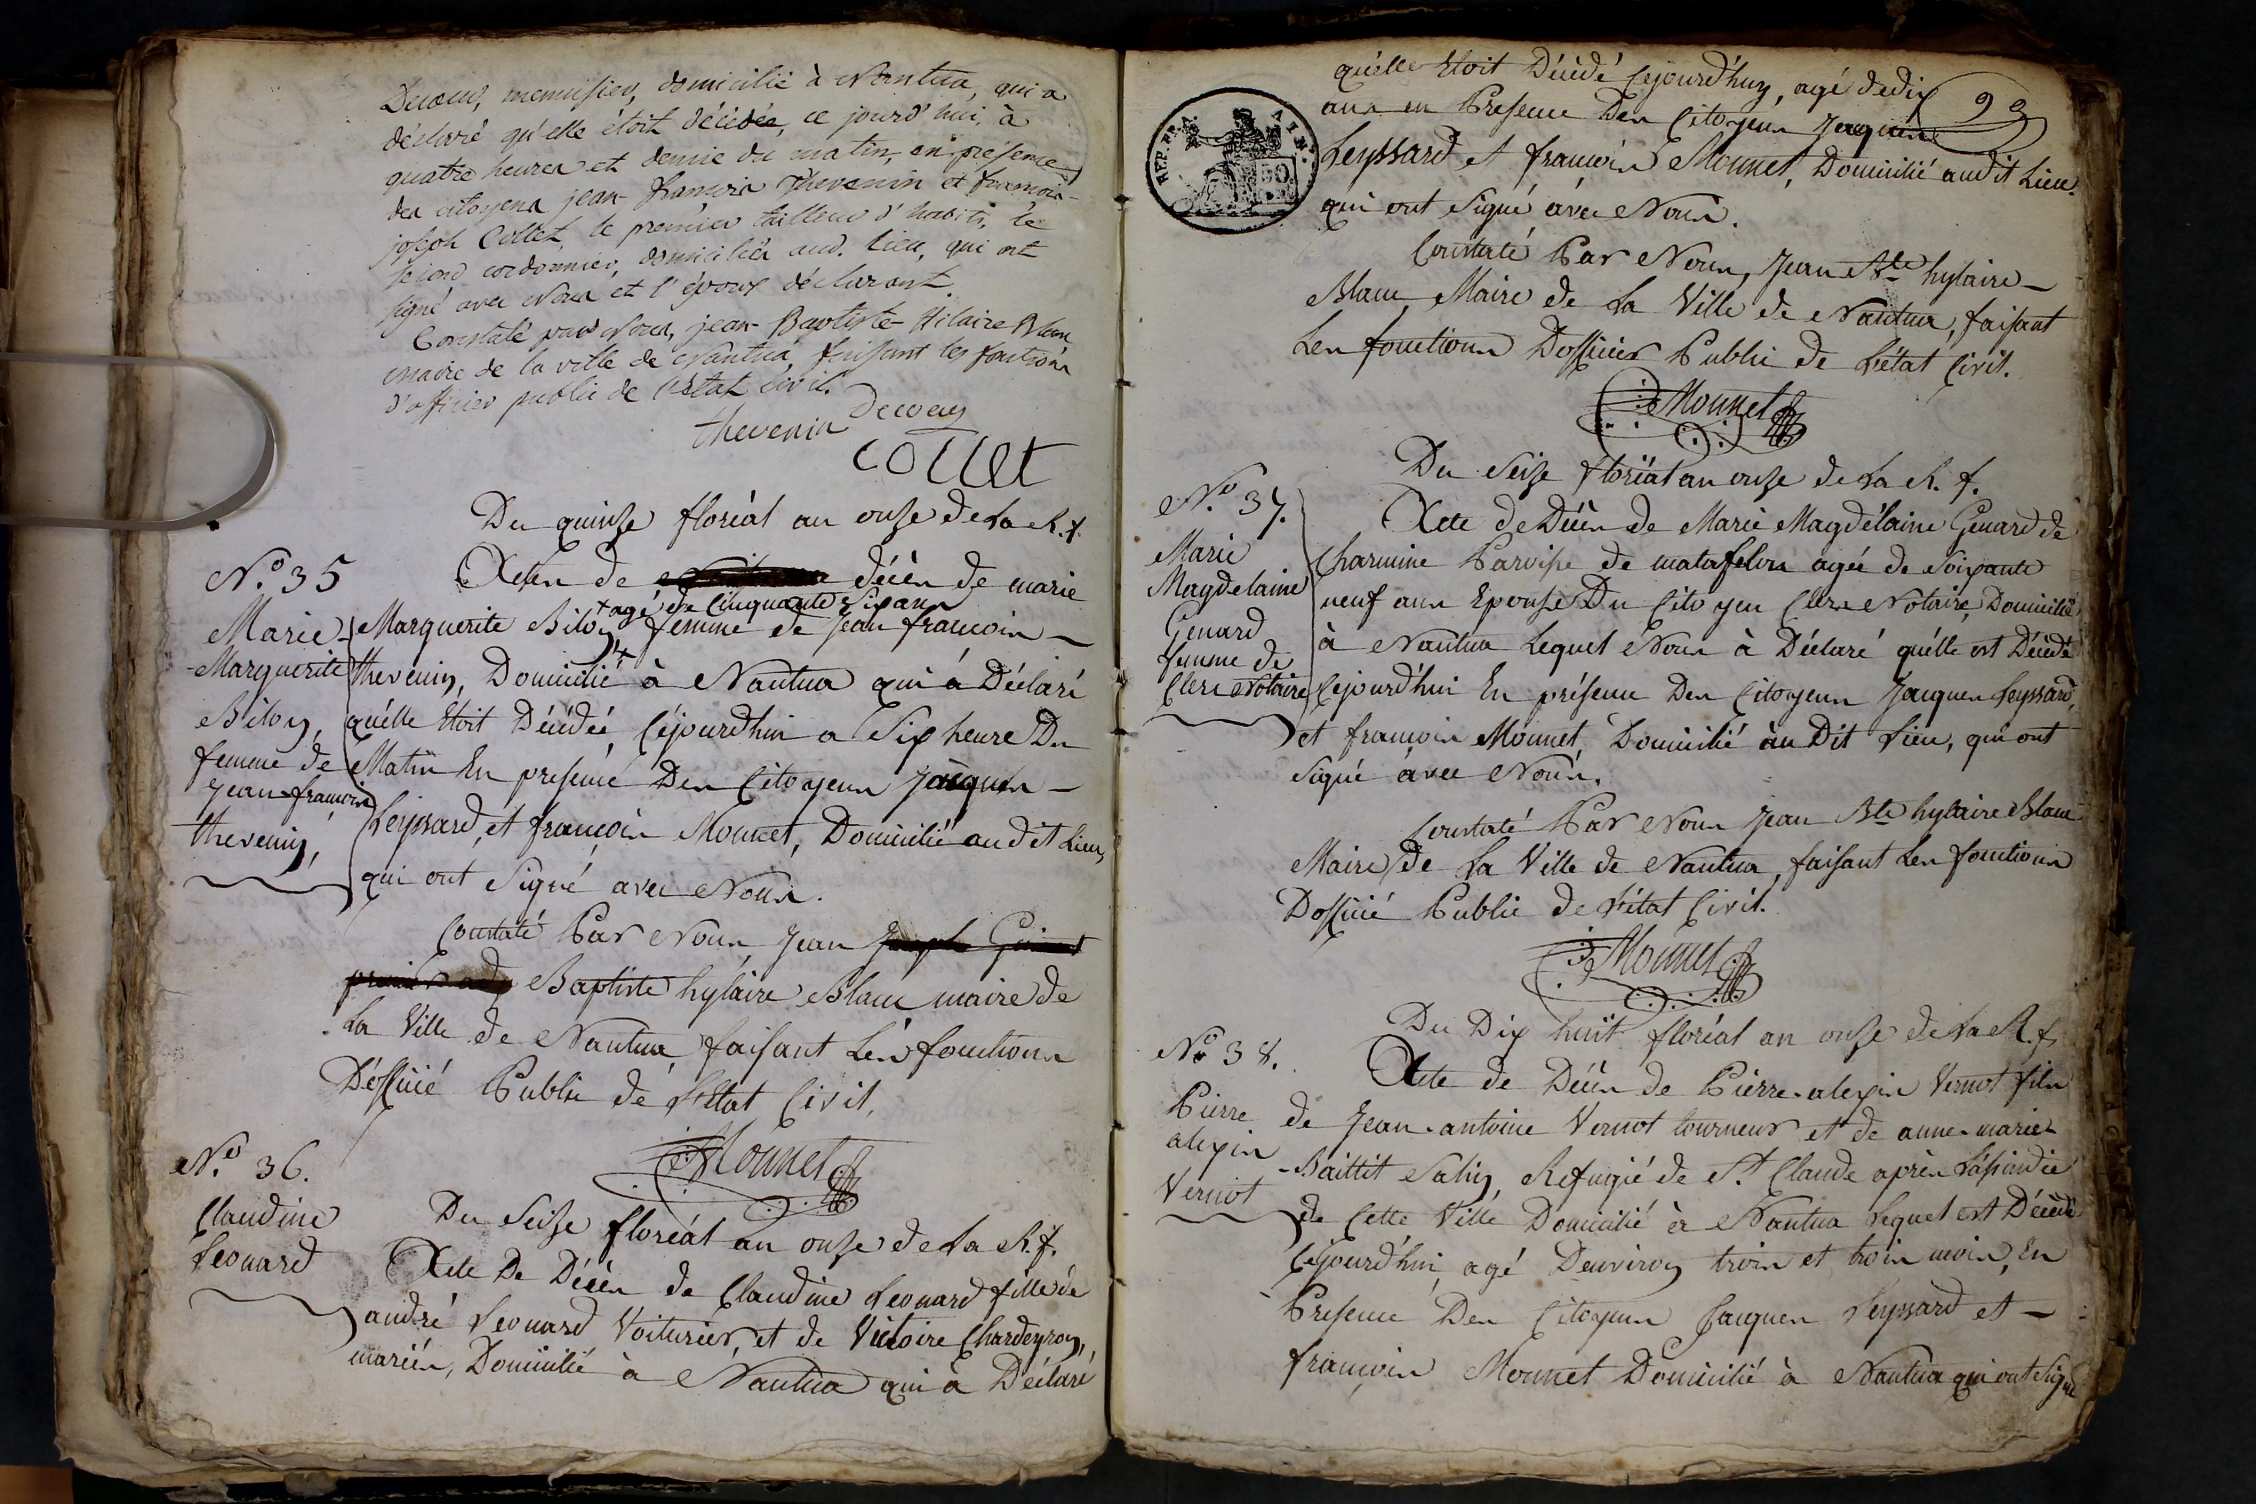 Decoeur, menuisier, domicilié à Nantua, qui a
déclaré qu'elle étoit décédée, ce jourd'hui, à
quatre heures et demie du matin, en présence
des citoyens jean-françois Thevenin et françois-
joseph Collet, le premier tailleur d'habits, le
second cordonnier, domiciliés aud. lieu, qui ont
signé avec Nous et l'époux déclarant.
Constaté par Nous, jean-Baptiste-Hilaire Blanc,
maire de la ville de Nantua, faisant les fonctions
d'officier public de l'état civil.
thevenin Decoeur
COLLET
Du quinze floréal an onze de La R.f.
N.º 35
Actes de décès de marie
+ agé de Cinquante Six ans
Marie
Marguerite
Biloy,
femme de
Jean-françois
thevenin,
Marguerite Biloy + femme de Jean françois
thevenin, Domicilié à Nantua qui à Déclaré
quélle Etoit Décédéé Céjourdhui a Six heure Du
Matin En presence Des Citoyens Jaques
Leyssard, et françois Monnet, Domicilié audit Lieu,
qui ont Signé avec Nous.
Constaté Par Nous Jean
Baptiste hylaire Blanc maire de
La Ville de Nantua, faisant Les fonctions
D'officié Public de L'Etat Civil,
Monnet
N.º 36.
Claudine
Leonard
Du Seize floréal an onze de La R.f.
Acte De Décès de Claudine Leonard fille de
andré Leonard Voiturier, et de Victoire Chardeyron,
mariés, Domicilié à Nantua qui à Déclaré
99
REP. FRA. AIN. 50
quélle Etoit Décédé Céjourd'huy, agé de dix
ans en Presence Des Citoyens Jaques
Leyssard et françois Monnet, Domicilié audit Lieu.
qui ont Signé avec Nous.
Constaté Par Nous, Jean Bte hylaire
Blanc, Maire de La Ville de Nantua, faisant
Les fonctions D'officier Public de L'état Civil.
Monnet
Du Seize floréal an onze de La R. f.
N.º 37.
Marie
Magdelaine
Genard
femme de
Clerc Notaire
Acte de Décès de Marie Magdélaine Genard de
Charmine Paroisse de matafelon agée de Soixante
neuf ans Epouse Du Citoyen Clerc Notaire, Domicilié
à Nantua Lequel Nous à Déclaré quélle est Décédé
Cejourd'hui En présence Des Citoyens Jacques Leyssard,
et françois Monnet, Domicilié au Dit Lieu, qui ont
Signé avec Nous.
Constaté Par Nous Jean Bte hylaire Blanc
Maire de La Ville de Nantua, faisant Les fonctions
D'officié Public de L'état Civil.
Monnet
Du Dix huit floréal an onze de La R.f.
N.º 38.
Pierre
alexin
Vernot
Acte de Décès de Pierre-alexin Vernot fils
de Jean-antoine Vernot tourneur et de anne-marie
Refugié de St Claude après L'assindie
de Cette Ville Domicilié à Nantua Lequel est Décédé
Céjourd'hui, agé D'environ trois et trois mois, En
Presence Des Citoyens Jacques Leyssard et
françois Monnet Domicilié à Nantua qui ont Signé